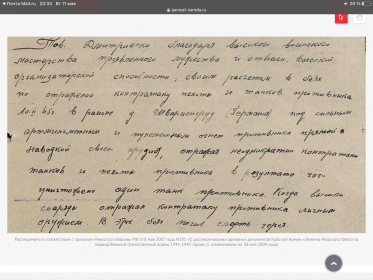 Почта Mail.ru 20:35 Вт 11 мая
20 %
pamyat-naroda.ru
Тов. Дмитриенко благодаря высокой воинского
мастерства проявленного мужества и отваги, высокой
организаторской способности, своим расчетом в боях
по отражению контратаки пехоты и танков противника
в районе д. (Германия) под сильным
артминометным и пулеметным огнем противника прямой
наводкой своих орудий, отражая неоднократно контратаки
танков и пехоты противника в результате чего
уничтожено один танк противника. Когда вышли
снаряды отражая контратаку противника личным
оружием. В этом бою погиб смертью героя.
Рассекречено в соответствии с приказом Министра обороны РФ от 8 мая 2007 года N181 «О рассекречивании архивных документов Красной Армии и Военно-Морского Флота за
период Великой Отечественной войны 1941-1945 годов» (с изменениями на 30 мая 2009 года)